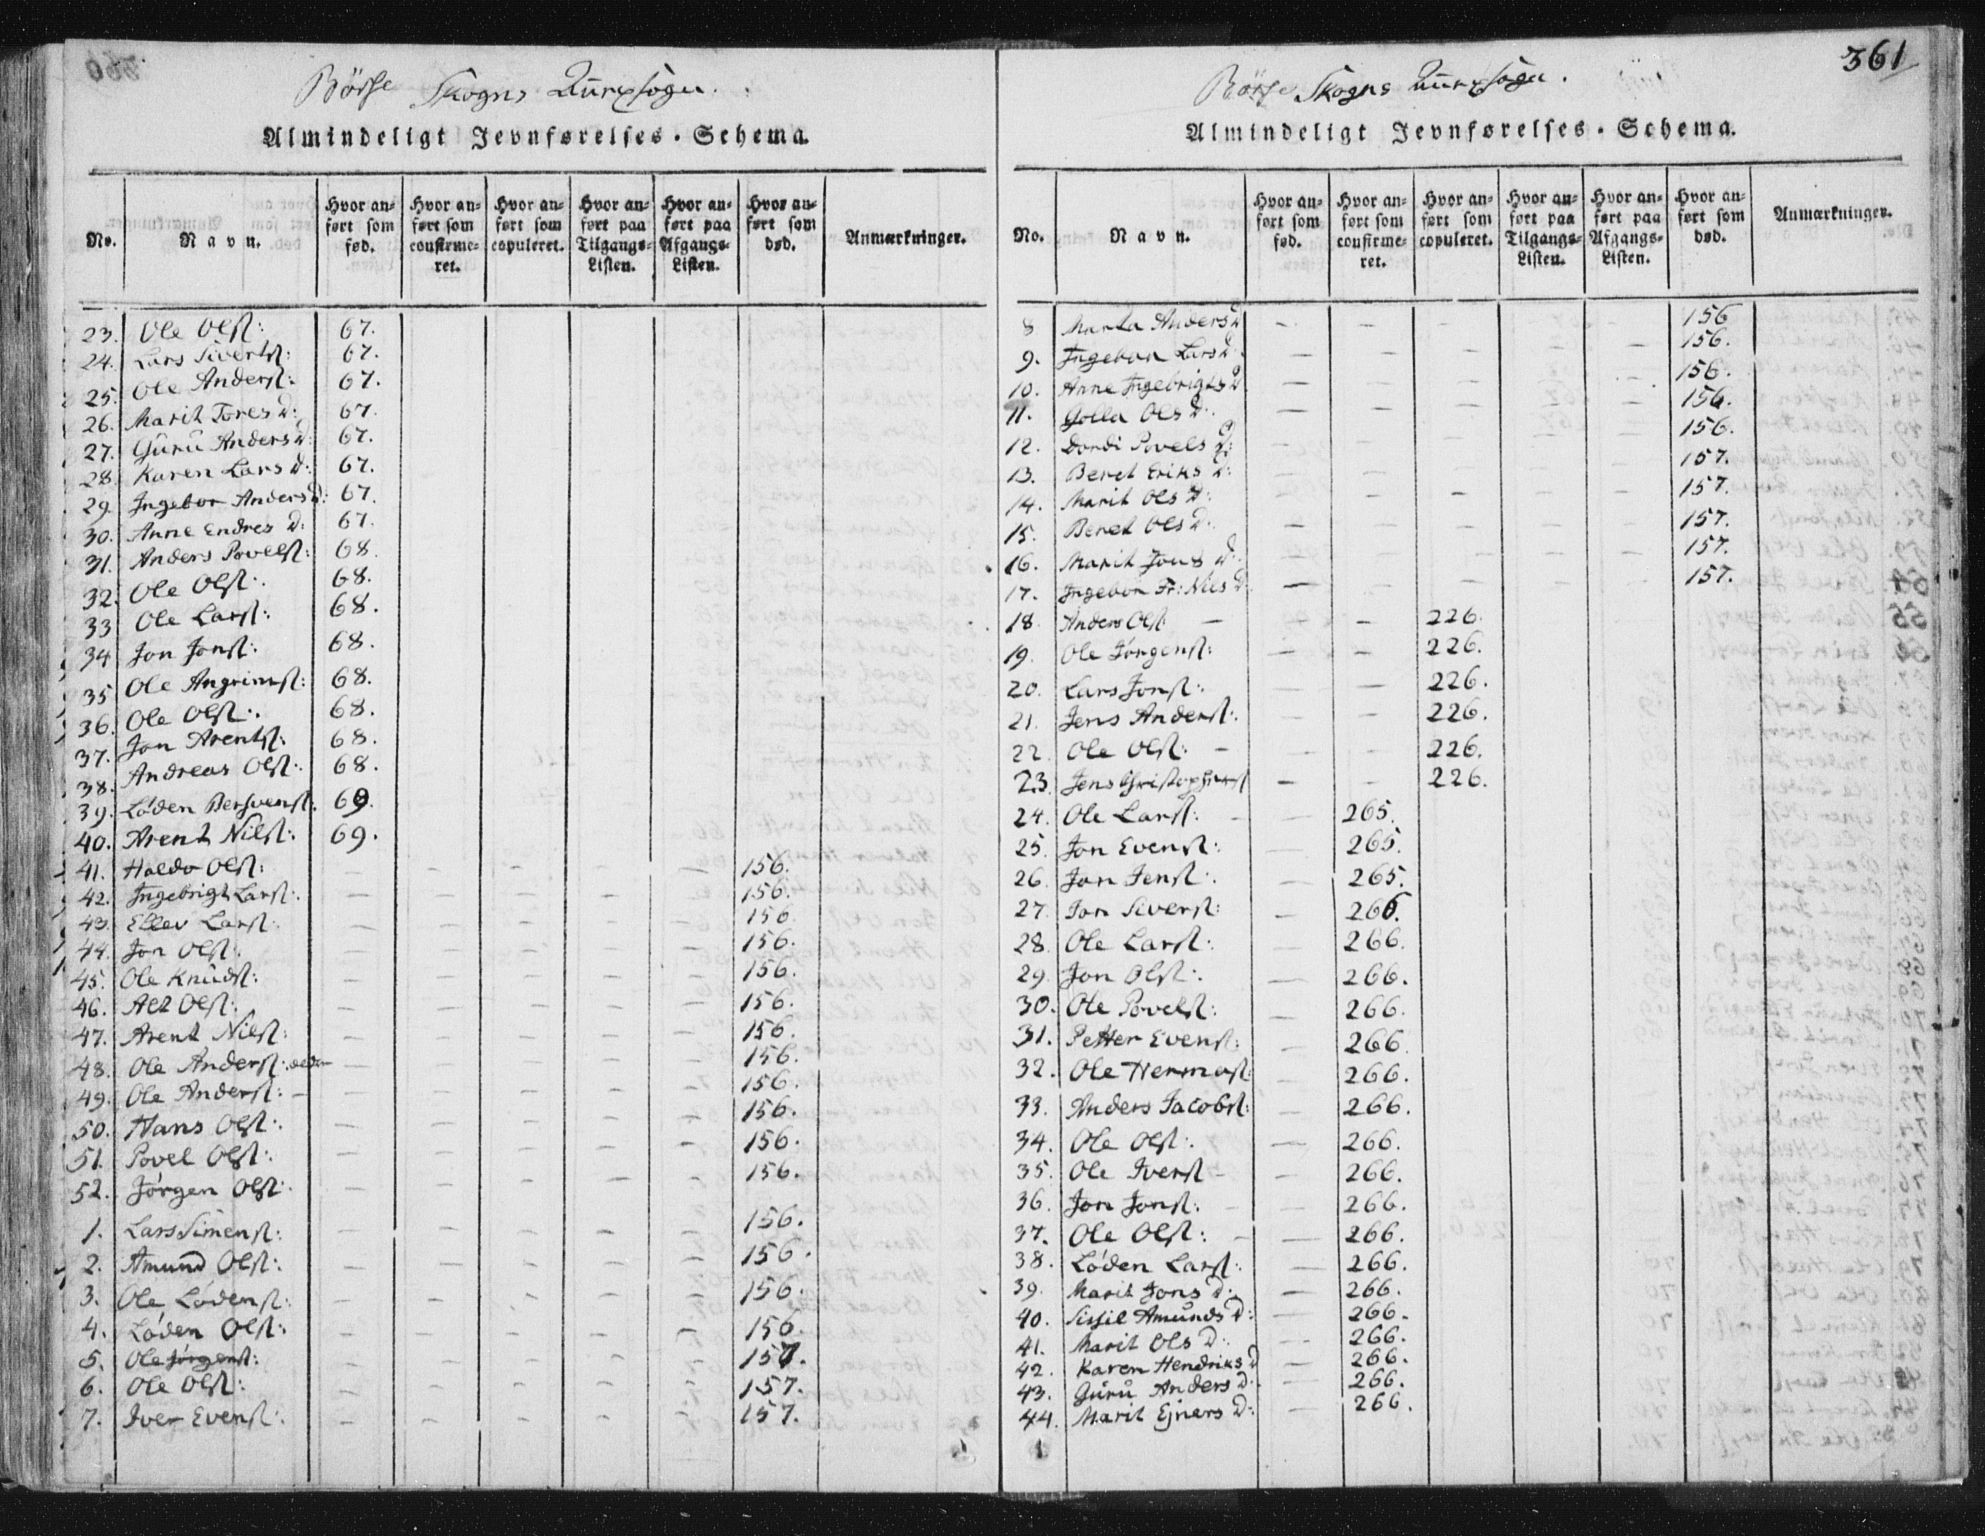 Börse Skogns
Almindeligt Jevnførelses-Schema.
No. Navn. Hvor anført som fød. Hvor anført som confirmeret. Hvor anført som copuleret. Hvor anført paa Tilgangs-Listen. Hvor anført paa Afgangs-Listen. Hvor anført som død. Anmærkninger.
23. Ole Olsn: 67.
24. Lars Sivertsn: 67.
25. Ole Andersn: 67.
26. Marit Tores D: 67.
27. Guru Anders D: 67.
28. Karen Lars D: 67.
29. Ingebor Anders D: 67.
30. Anne Endres D: 67.
31. Anders Povelsn: 68.
32. Ole Olsn: 68.
33. Ole Larsn: 68.
34. Jon Jonsn: 68.
35. Ole Angrimsn: 68.
36. Ole Olsn: 68.
37. Jon Arentsn: 68.
38. Andreas Olsn: 68.
39. Löden Persvensn: 69.
40. Arent Nilsn: 69.
41. Haldo Olsn: — — — — — 156.
42. Ingebrigt Larsn: — — — — — 156.
43. Ellev Larsn: — — — — — 156.
44. Jon Olsn: — — — — — 156.
45. Ole Knudsn: — — — — — 156.
46. Alt Olsn: — — — — — 156.
47. Arent Nilsn: — — — — — 156.
48. Ole Andersn: — — — — — 156.
49. Ole Andersn: — — — — — 156.
50. Hans Olsn: — — — — — 156.
51. Povel Olsn: — — — — — 156.
52. Jörgen Olsn: — — — — — 156.
1. Lars Simensn: — — — — — 156.
2. Amund Olsn: — — — — — 156.
3. Ole Lödensn: — — — — — 156.
4. Löden Olsn: — — — — — 156.
5. Ole Jörgensn: — — — — — 157.
6. Ole Olsn: — — — — — 157.
7. Iver Evensn: — — — — — 157.
361
Börse Skogns
Almindeligt Jevnførelses-Schema.
No. Navn. Hvor anført som fød. Hvor anført som confirmeret. Hvor anført som copuleret. Hvor anført paa Tilgangs-Listen. Hvor anført paa Afgangs-Listen. Hvor anført som død. Anmærkninger.
8 Marta Anders D — — — — — 156
9. Ingebor Lars D. — — — — — 156.
10. Anne Ingebrigts D — — — — — 156.
11. Golla Ols D. — — — — — 156.
12. Dordi Povels D: — — — — — 156.
13. Beret Eriks D: — — — — — 157.
14. Marit Ols D: — — — — — 157.
15. Beret Ols D: — — — — — 157.
16. Marit Jons D: — — — — — 157.
17. Ingebor Fr: Nils D — — — — — 157.
18. Anders Olsn — — — 226.
19. Ole Jörgensn: — — 226.
20. Lars Jonsn: — — 226.
21. Jens Andersn: — — 226.
22. Ole Olsn: — — — 226.
23. Jens Christophersn — — 226.
24. Ole Larsn: — — 265.
25. Jon Evensn: — 265.
26. Jon Jensn: — 265.
27. Jon Siversn: — 266.
28. Ole Larsn: — 266.
29. Jon Olsn: — 266.
30. Ole Povelsn: — 266.
31. Petter Evensn: — 266.
32. Ole Hermosn — 266.
33. Anders Jacobsn: — 266.
34. Ole Olsn: — 266.
35. Ole Iversn — — 266.
36. Jon Jonsn: — — 266.
37. Ole Olsn: — — 266.
38. Löden Larsn: — 266.
39. Marit Jons D: — 266.
40. Sissil Amunds D: — 266.
41. Marit Ols D: — 266.
42. Karen Hendriks D — 266.
43. Guru Anders D: — 266.
44. Marit Ejners D: — 266.